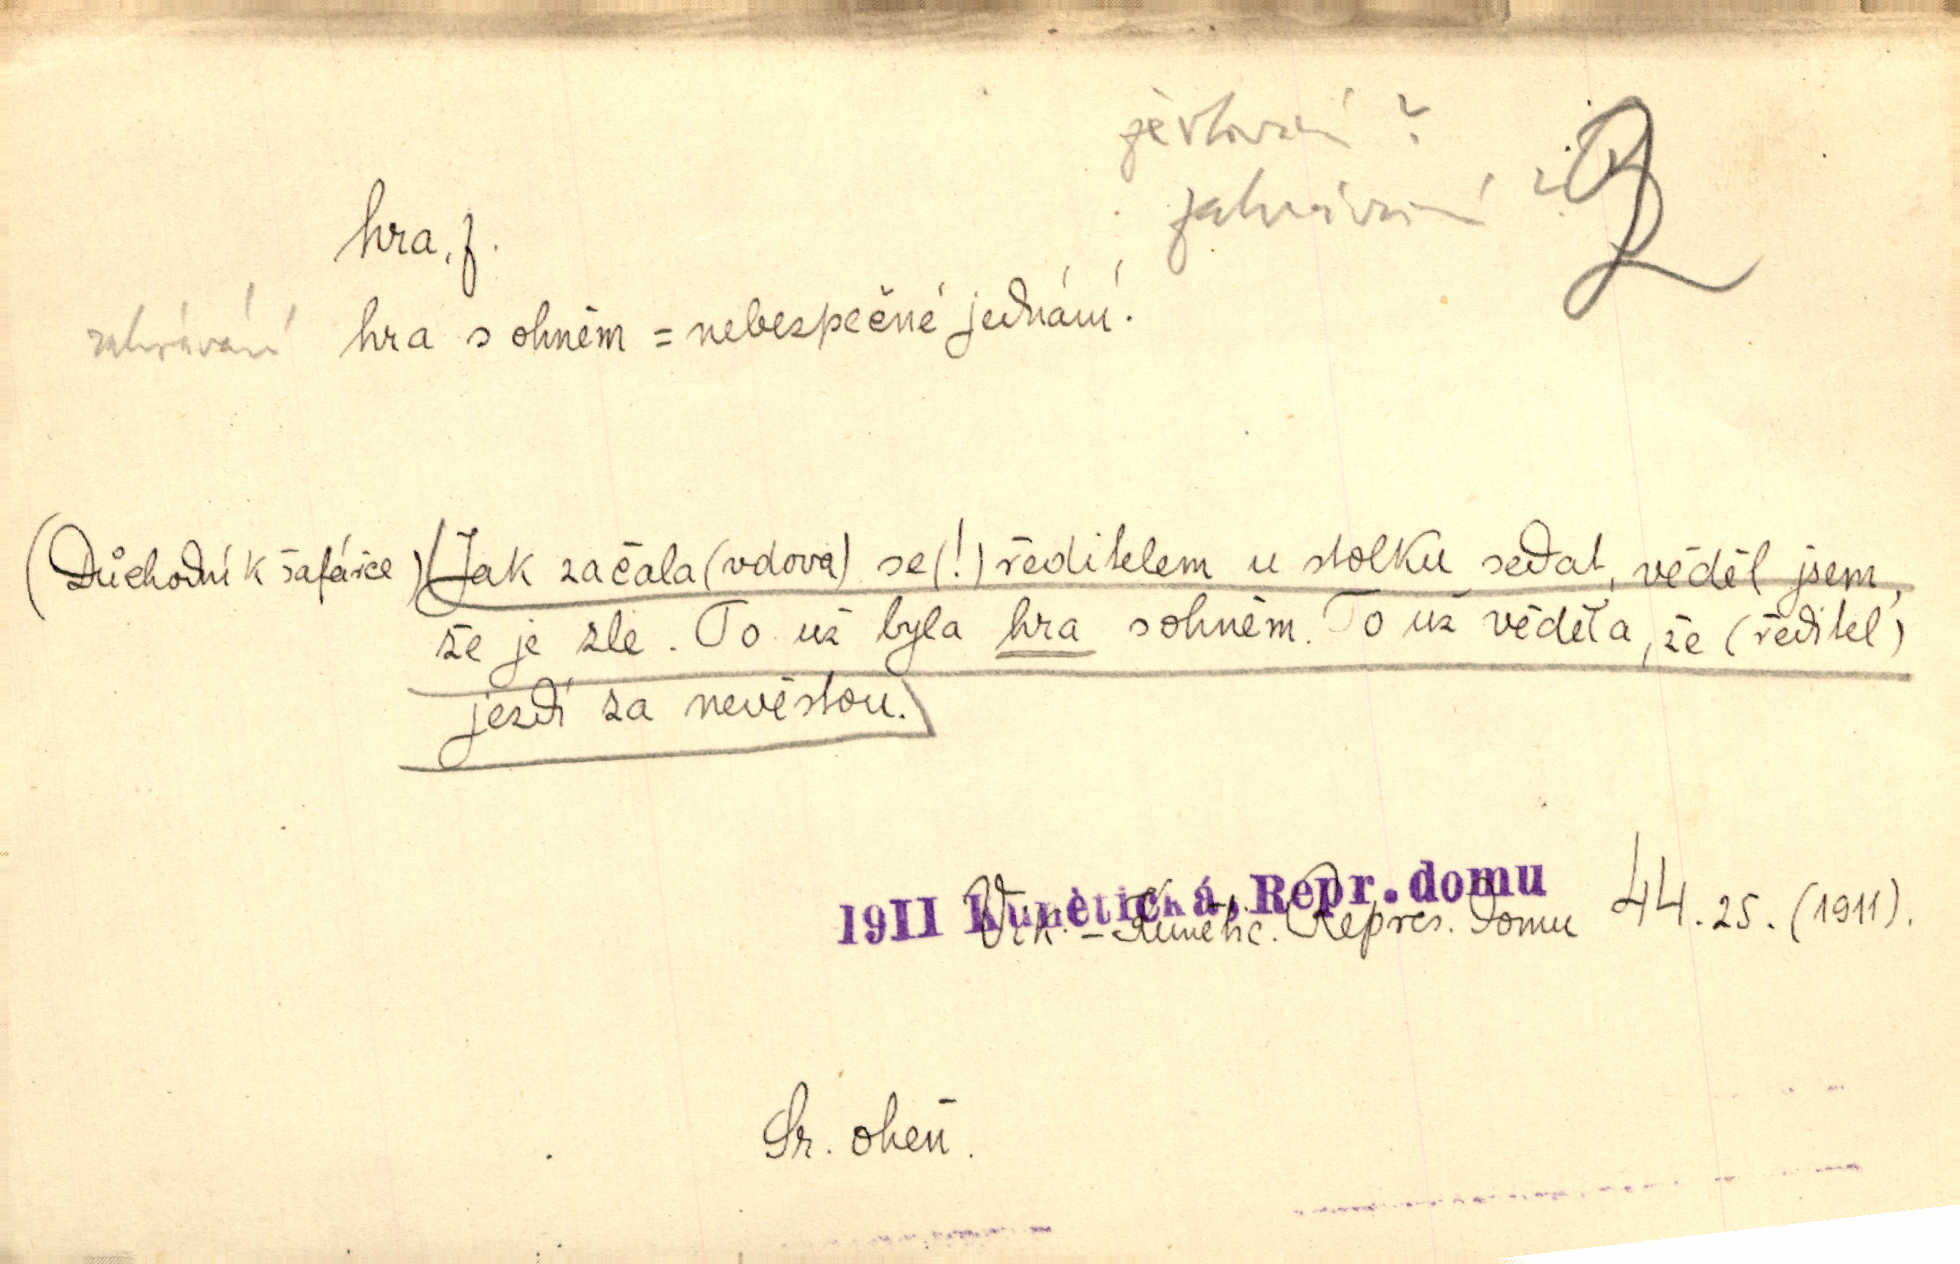 hra, f.
zahrávání hra s ohněm = nebezpečné jednání.
(Důchodní k šafářce) Jak začala (vdova) se (!) ředitelem u stolku sedat, věděl jsem,
že je zle. To už byla hra s ohněm. To už věděla, že (ředitel)
jezdí za nevěstou.
1911 Kunětická, Repr. domu
Vik. - Kunětic. Repres. domu 44. 25. (1911).
Sr. oheň.